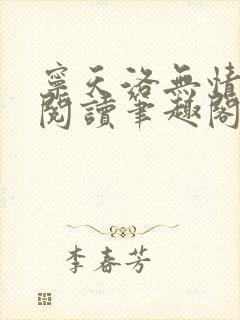 寧天洛無情
閱讀筆趣閣
李春芳